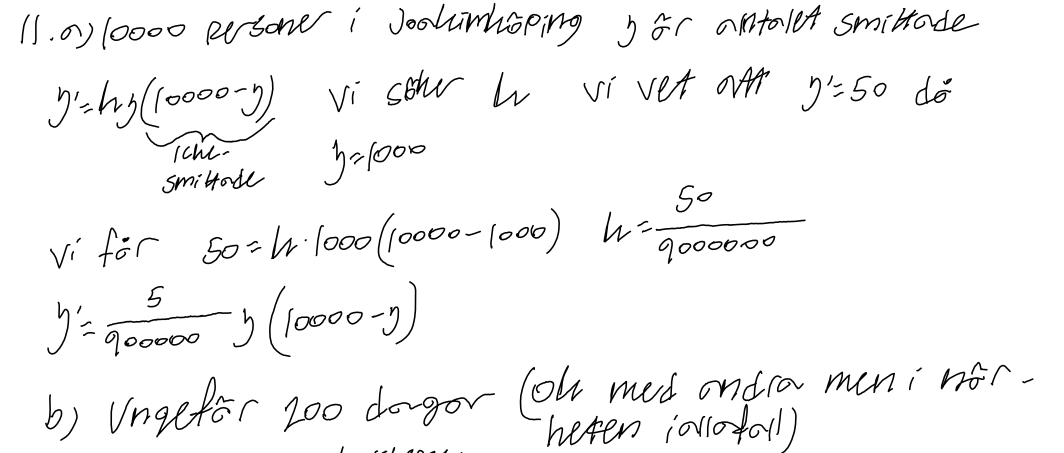 11.a) 10000 personer i Joakimköping y är antalet smittade
y'=ky(10000-y) vi söker k vi vet att y'=50 då
icke-
smittade y=1000
vi får 50=k·1000(10000-1000) k=50/9000000
y'=5/900000 y(10000-y)
b) Ungefär 200 dagar (ok med andra men i när-
heten iallafall)